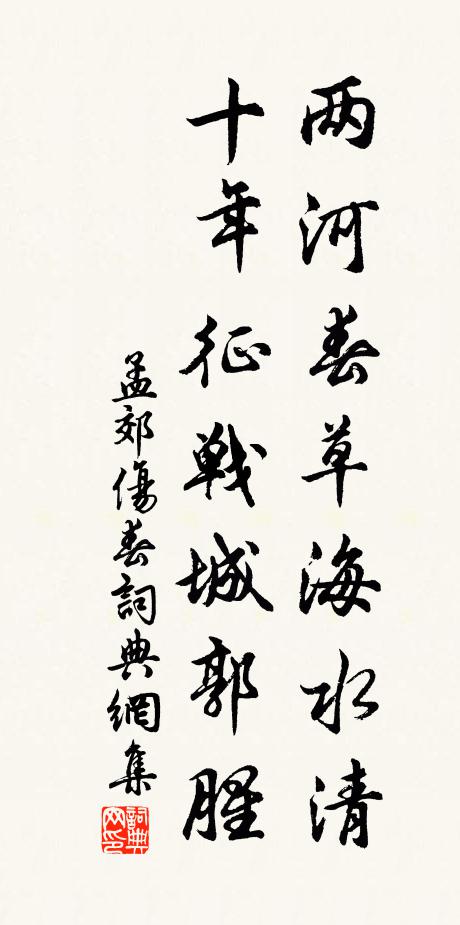 两河春草海水清
十年征戦城郭腥
孟郊傷春詞典網集
詞典网印